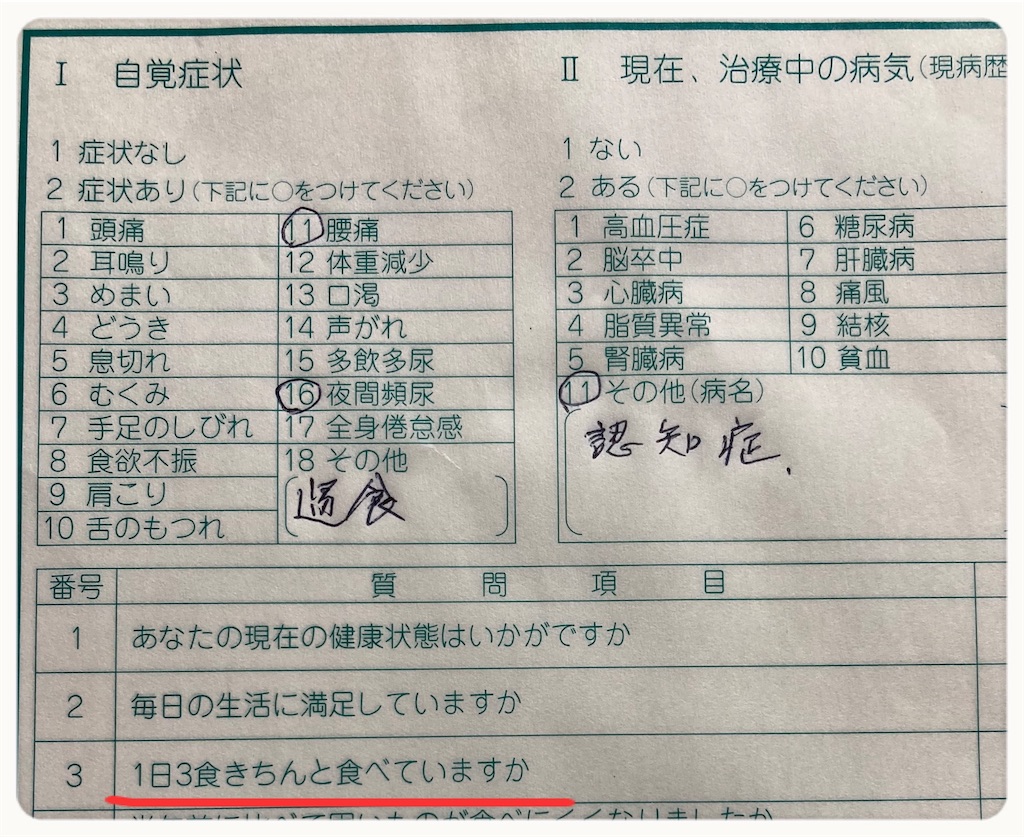 I 自覚症状
1 症状なし
2 症状あり(下記に○をつけてください)
1 頭痛
2 耳鳴り
3 めまい
4 どうき
5 息切れ
6 むくみ
7 手足のしびれ
8 食欲不振
9 肩こり
10 舌のもつれ
11 腰痛
12 体重減少
13 口渇
14 声がれ
15 多飲多尿
16 夜間頻尿
17 全身倦怠感
18 その他
過食
II 現在、治療中の病気(現病歴
1 ない
2 ある(下記に○をつけてください)
1 高血圧症
2 脳卒中
3 心臓病
4 脂質異常
5 腎臓病
6 糖尿病
7 肝臓病
8 痛風
9 結核
10 貧血
11 その他(病名)
認知症.
番号 質問項目
1 あなたの現在の健康状態はいかがですか
2 毎日の生活に満足していますか
3 1日3食きちんと食べていますか